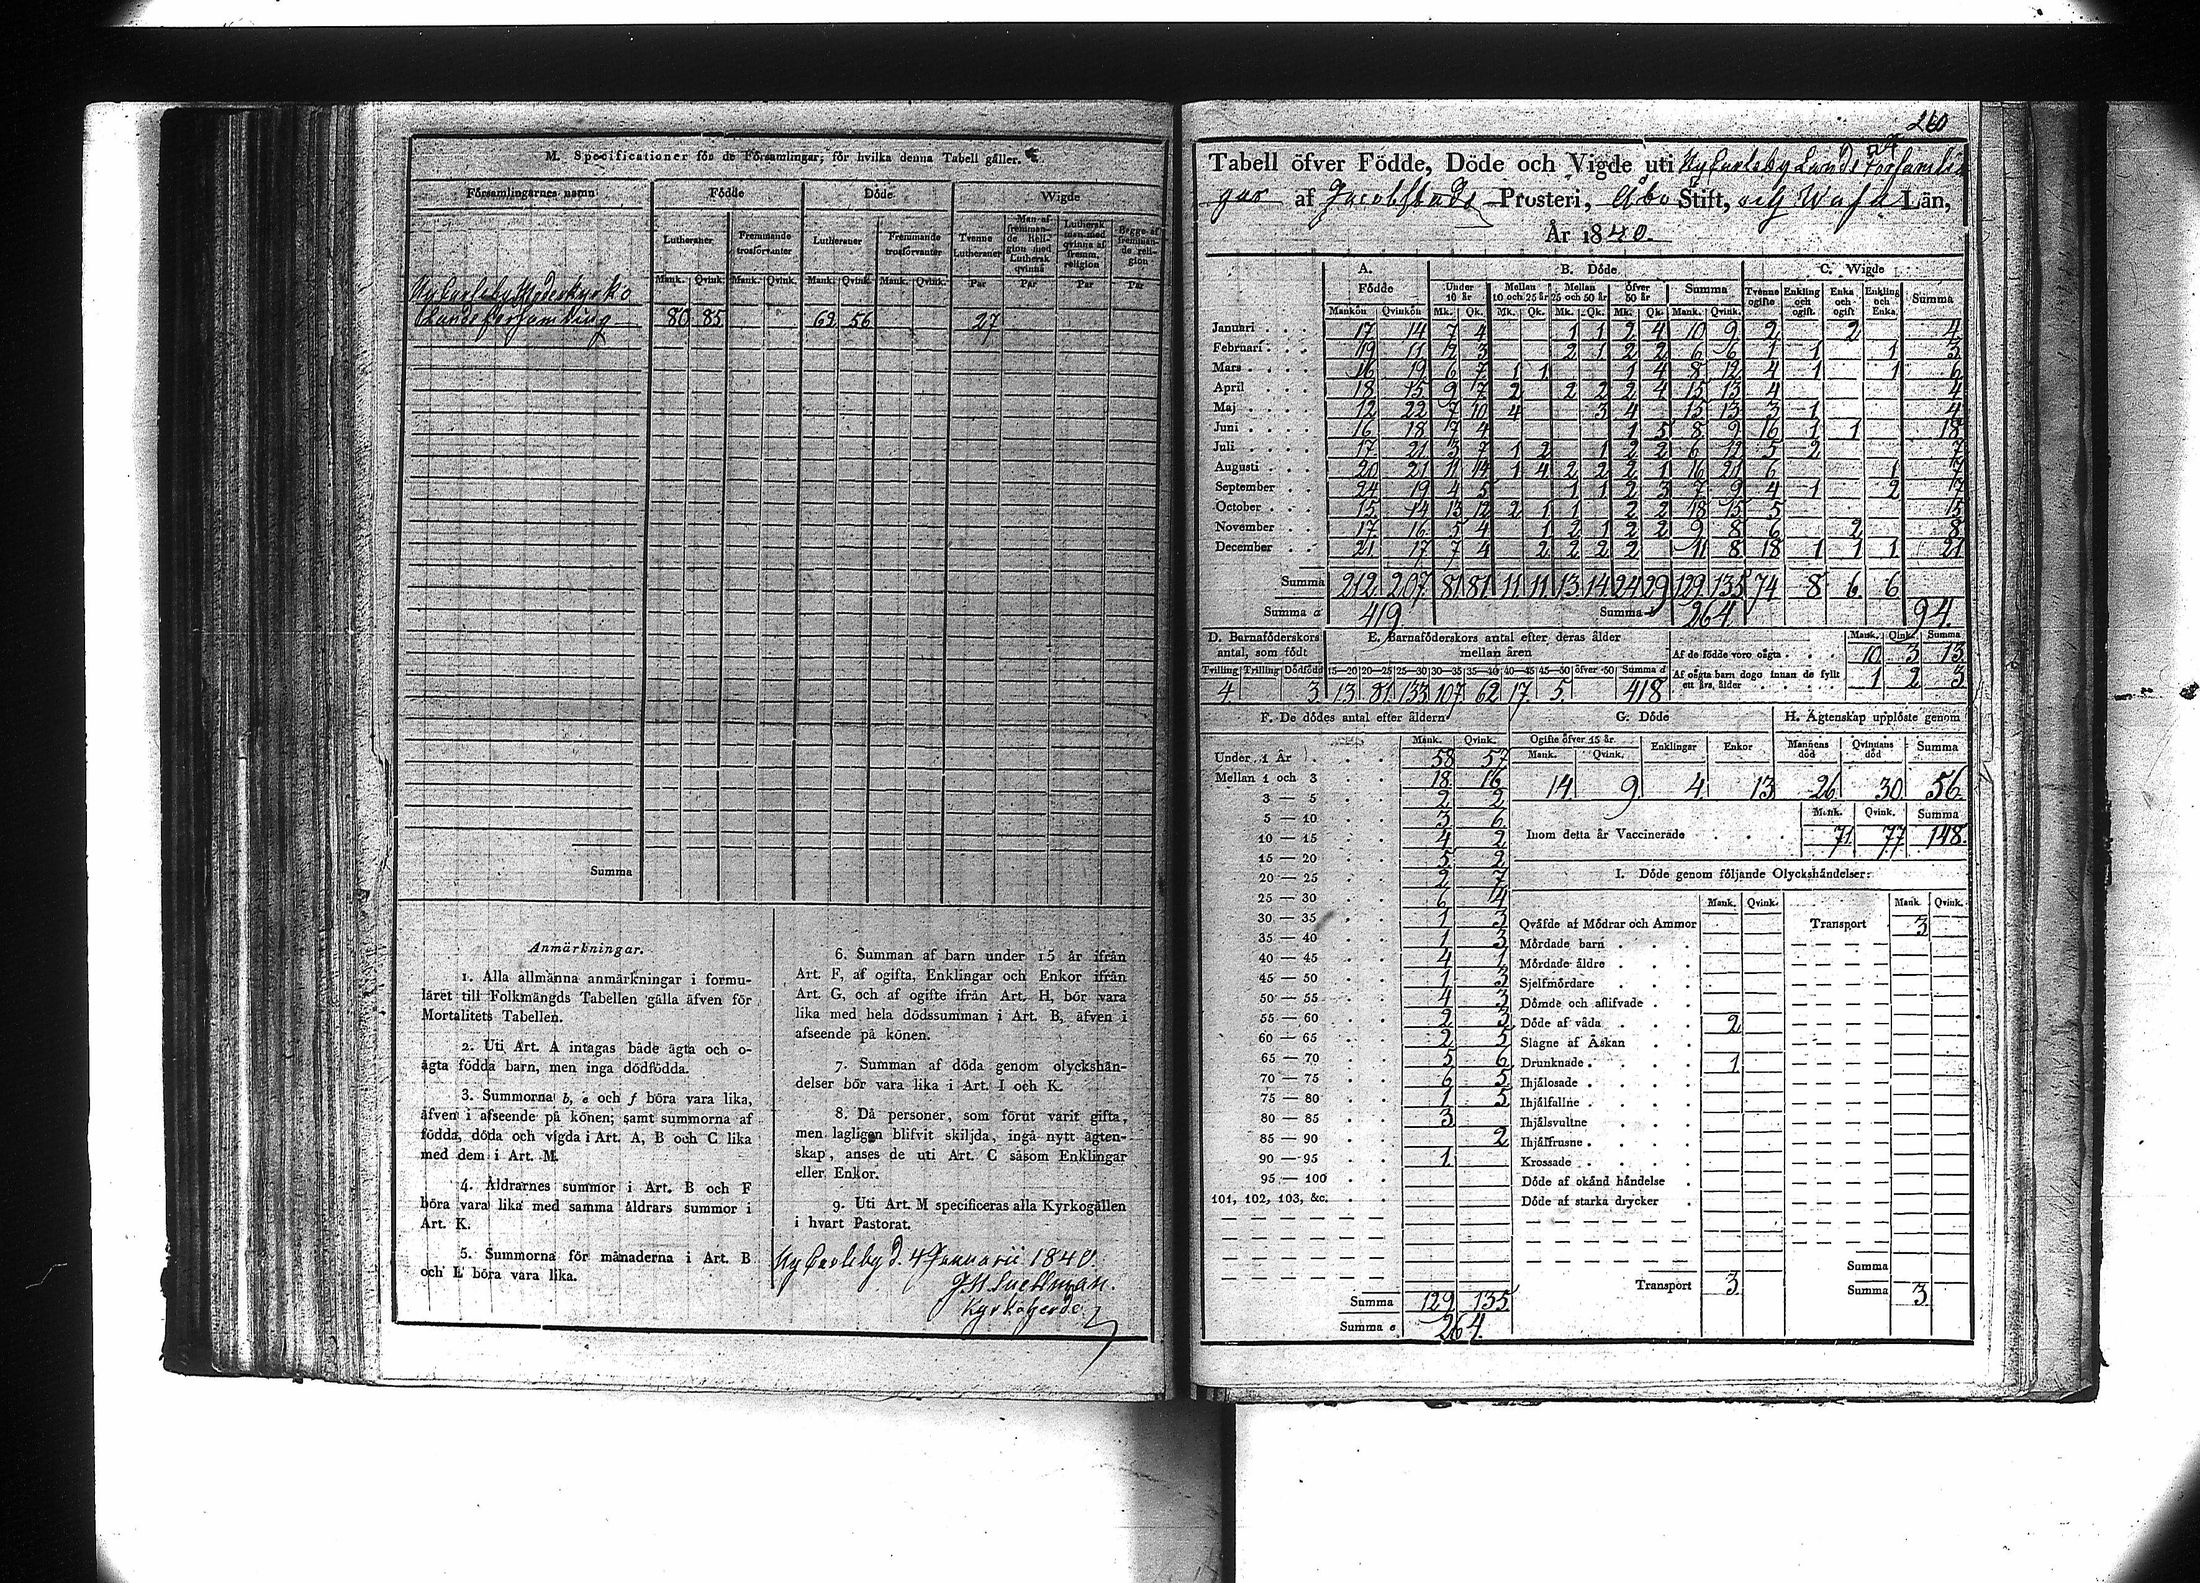 M. Specificationer för de Församlingar, för hvilka denna Tabell gäller.
Församlingarnes namn Födde Döde Wigde
Lutheraner Fremmande trosförvanter Lutheraner Fremmande trosförvanter Tvenne Lutheraner Man af fremmande Religion med Luthersk qvinna Luthersk man med qvinna af fremm. religion Begge af fremmande religion
Mank. Qvink. Mank. Qvink. Mank. Qvink. Mank. Qvink. Par Par Par Par
Ny Carleby Moderkyrko
Landsförsamling 80 85 62 56 27
Summa
Anmärkningar.
1. Alla allmänna anmärkningar i formu-
läret till Folkmängds Tabellen gälla äfven för
Mortalitets Tabellen.
2. Uti Art. A intagas både ägta och o-
ägta födda barn, men inga dödfödda.
3. Summorna b, e och f böra vara lika,
äfven i afseende på könen; samt summorna af
födda, döda och vigda i Art. A, B och C lika
med dem i Art. M.
4. Åldrarnes summor i Art. B och F
böra vara lika med samma åldrars summor i
Art. K.
5. Summorna för månaderna i Art. B
och L böra vara lika.
6. Summan af barn under 15 år ifrån
Art. F, af ogifta, Enklingar och Enkor ifrån
Art. G, och af ogifte ifrån Art. H, bör vara
lika med hela dödssumman i Art. B, äfven i
afseende på könen.
7. Summan af döda genom olyckshän-
delser bör vara lika i Art. I och K.
8. Då personer, som förut varit gifta,
men lagligen blifvit skiljda, ingå nytt ägten-
skap, anses de uti Art. C såsom Enklingar
eller Enkor.
9. Uti Art. M specificeras alla Kyrkogällen
i hvart Pastorat.
Ny Carleby d. 4 Januarii 1840.
Kyrkoherde
260
Tabell öfver Födde, Döde och Vigde uti Ny Carleby Lands Församlin
gar af Jacobstads Prosteri, Åbo Stift, och Wasa Län,
År 1840.
A. Födde B. Döde C. Wigde
Under 10 år Mellan 10 och 25 år Mellan 25 och 50 år Öfver 50 år Summa Tvenne ogifte Enkling och ogift. Enka och ogift Enkling och Enka. Summa
Mankön Qvinkön Mk. Qk. Mk. Qk. Mk. Qk. Mk. Qk. Mank. Qvink.
Januari 17 14 7 4 1 1 2 4 10 9 2 2 4
Februari 19 11 2 3 2 1 2 2 6 6 1 1 1 3
Mars 16 19 6 7 1 1 1 4 8 12 4 1 1 6
April 18 15 9 7 2 2 2 2 4 15 13 4 4
Maj 12 22 7 10 4 3 4 15 13 3 1 4
Juni 16 18 7 4 1 5 8 9 16 1 1 18
Juli 17 21 3 7 1 2 1 2 2 6 12 5 2 7
Augusti 20 21 11 14 1 4 2 2 2 1 16 21 6 1 7
September 24 19 4 5 1 1 2 3 7 9 4 1 2 7
October 15 14 13 12 2 1 1 2 2 18 15 5 15
November 17 16 5 4 1 2 1 2 2 9 8 6 2 8
December 21 17 7 4 2 2 2 2 11 8 18 1 1 1 21
Summa 212 207 81 81 11 11 13 14 24 29 129 135 74 8 6 6
Summa a 419 Summa b 264 94.
D. Barnaföderskors antal, som födt E. Barnaföderskors antal efter deras ålder mellan åren
Mank. Qvink. Summa
Af de födde voro oägta 10 3 13
Tvilling Trilling Dödfödd 15—20 20—25 25—30 30—35 35—40 40—45 45—50 öfver 50 Summa d
Af oägta barn dogo innan de fyllt ett års ålder 1 2 3
4 3 13 81 133 107 62 17 5 418
F. De dödes antal efter åldern G. Döde H. Ägtenskap upplöste genom
Mank. Qvink. Ogifte öfver 15 år. Mank. Qvink. Enklingar Enkor Mannens död Qvinnans död Summa
14 9 4 13 26 30 56
Under 1 År 58 57
Mellan 1 och 3 18 16
3 — 5 2 2
5 — 10 3 6
10 — 15 4 2
15 — 20 5 2
20 — 25 2 7
25 — 30 6 4
30 — 35 1 3
35 — 40 1 3
40 — 45 4 1
45 — 50 1 3
50 — 55 4 3
55 — 60 2 3
60 — 65 2 5
65 — 70 5 6
70 — 75 6 5
75 — 80 1 5
80 — 85 3
85 — 90 2
90 — 95 1
95 — 100
101, 102, 103, &c.
Summa 129 135
Summa e 264.
Mank. Qvink. Summa
Inom detta år Vaccinerade 71 77 148
I. Döde genom följande Olyckshändelser:
Mank. Qvink. Mank. Qvink.
Qväfde af Mödrar och Ammor Transport 3
Mördade barn
Mördade äldre
Sjelfmördare
Dömde och aflifvade
Döde af våda 2
Slagne af Åskan
Drunknade 1
Ihjälosade
Ihjälfallne
Ihjälsvultne
Ihjälfrusne
Krossade
Döde af okänd händelse
Döde af starka drycker
Summa
Transport 3 Summa 3